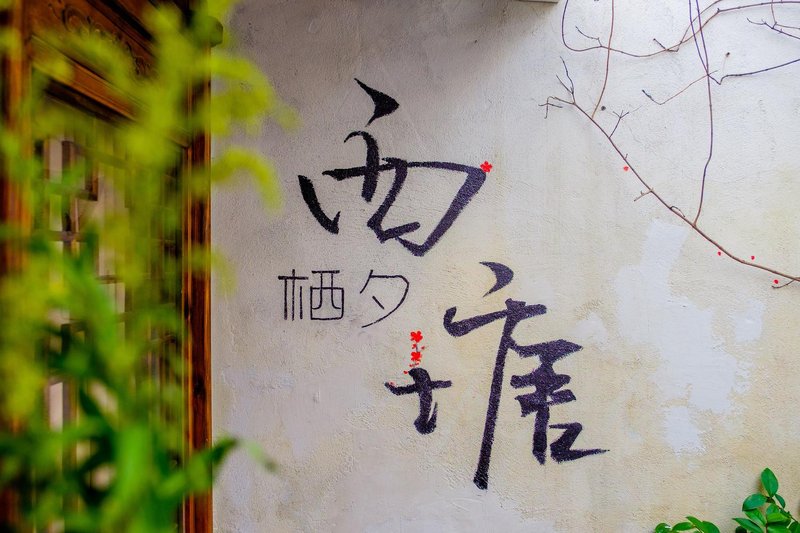 西塘
栖夕